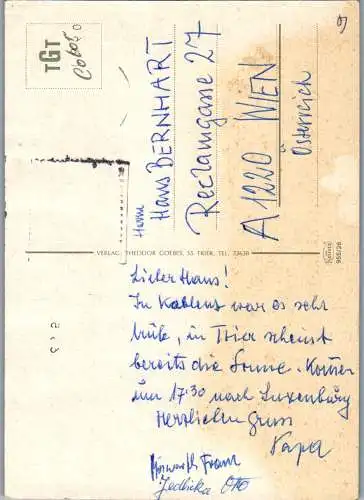 TGT
Color
Herrn
Hans BERNHART
Reclamgasse 27
A 1220 WIEN
Österreich
VERLAG: THEODOR GOEBEL, 55 TRIER, TEL. 72638
955/26
Lieber Hans!
In Koblenz war es sehr
trüb, in Trier scheint
bereits die Sonne. Kommen
um 17:30 nach Luxenburg
Herzlichen Gruss
Papa
Franz
Jedlicka Otto